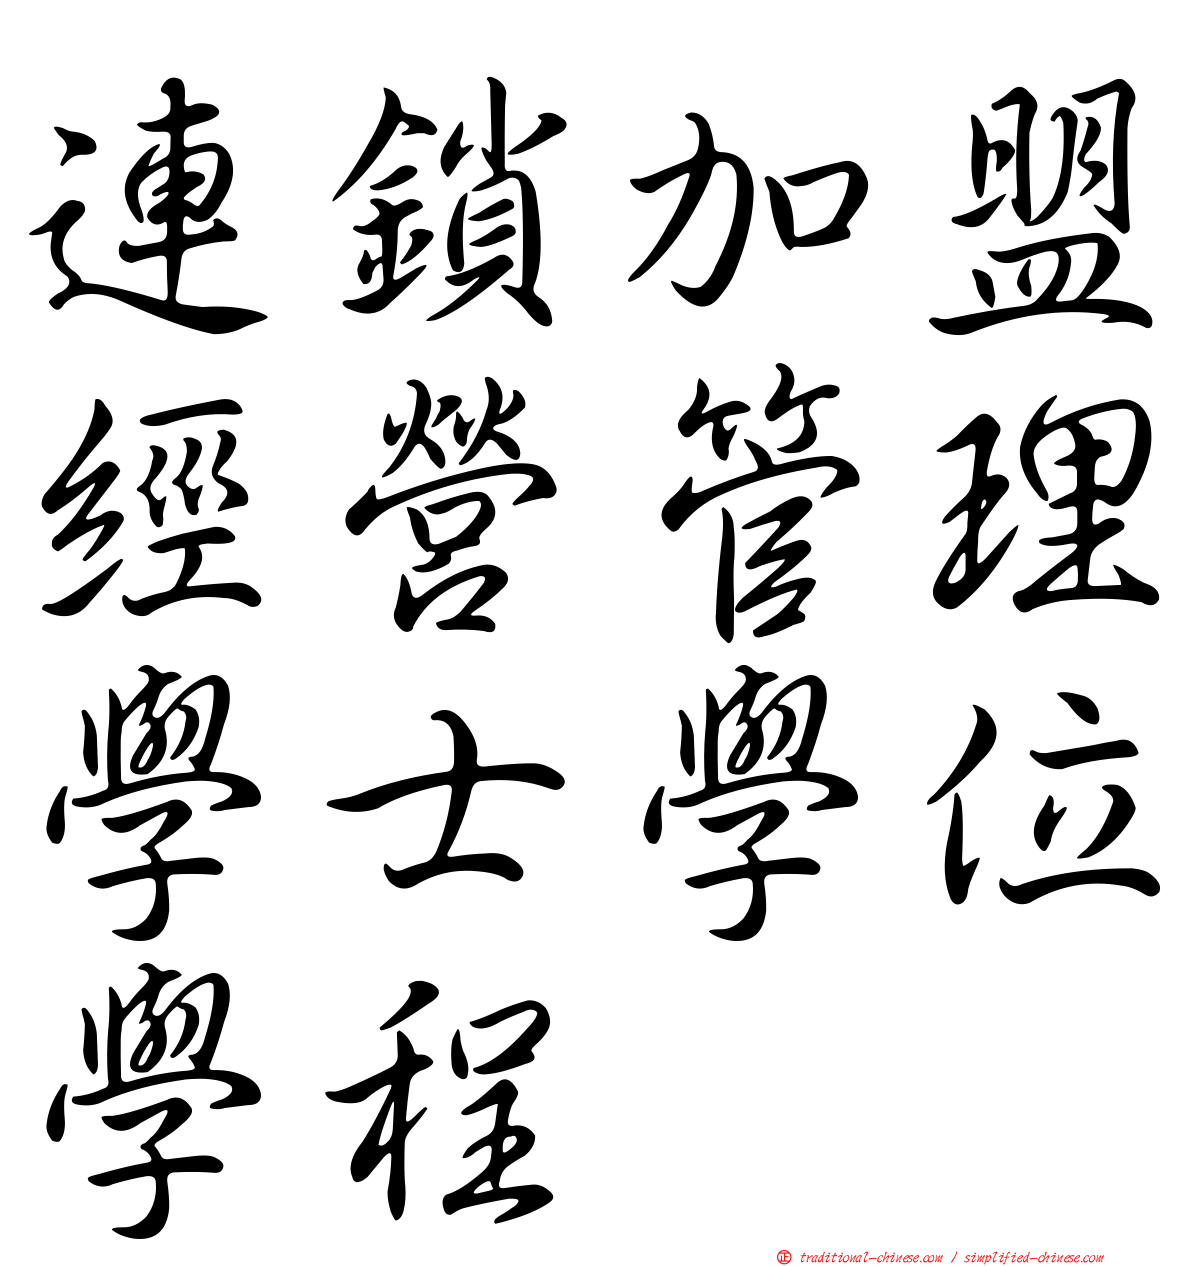 連鎖加盟
經營管理
學士學位
學程
正 traditional-chinese.com / simplified-chinese.com